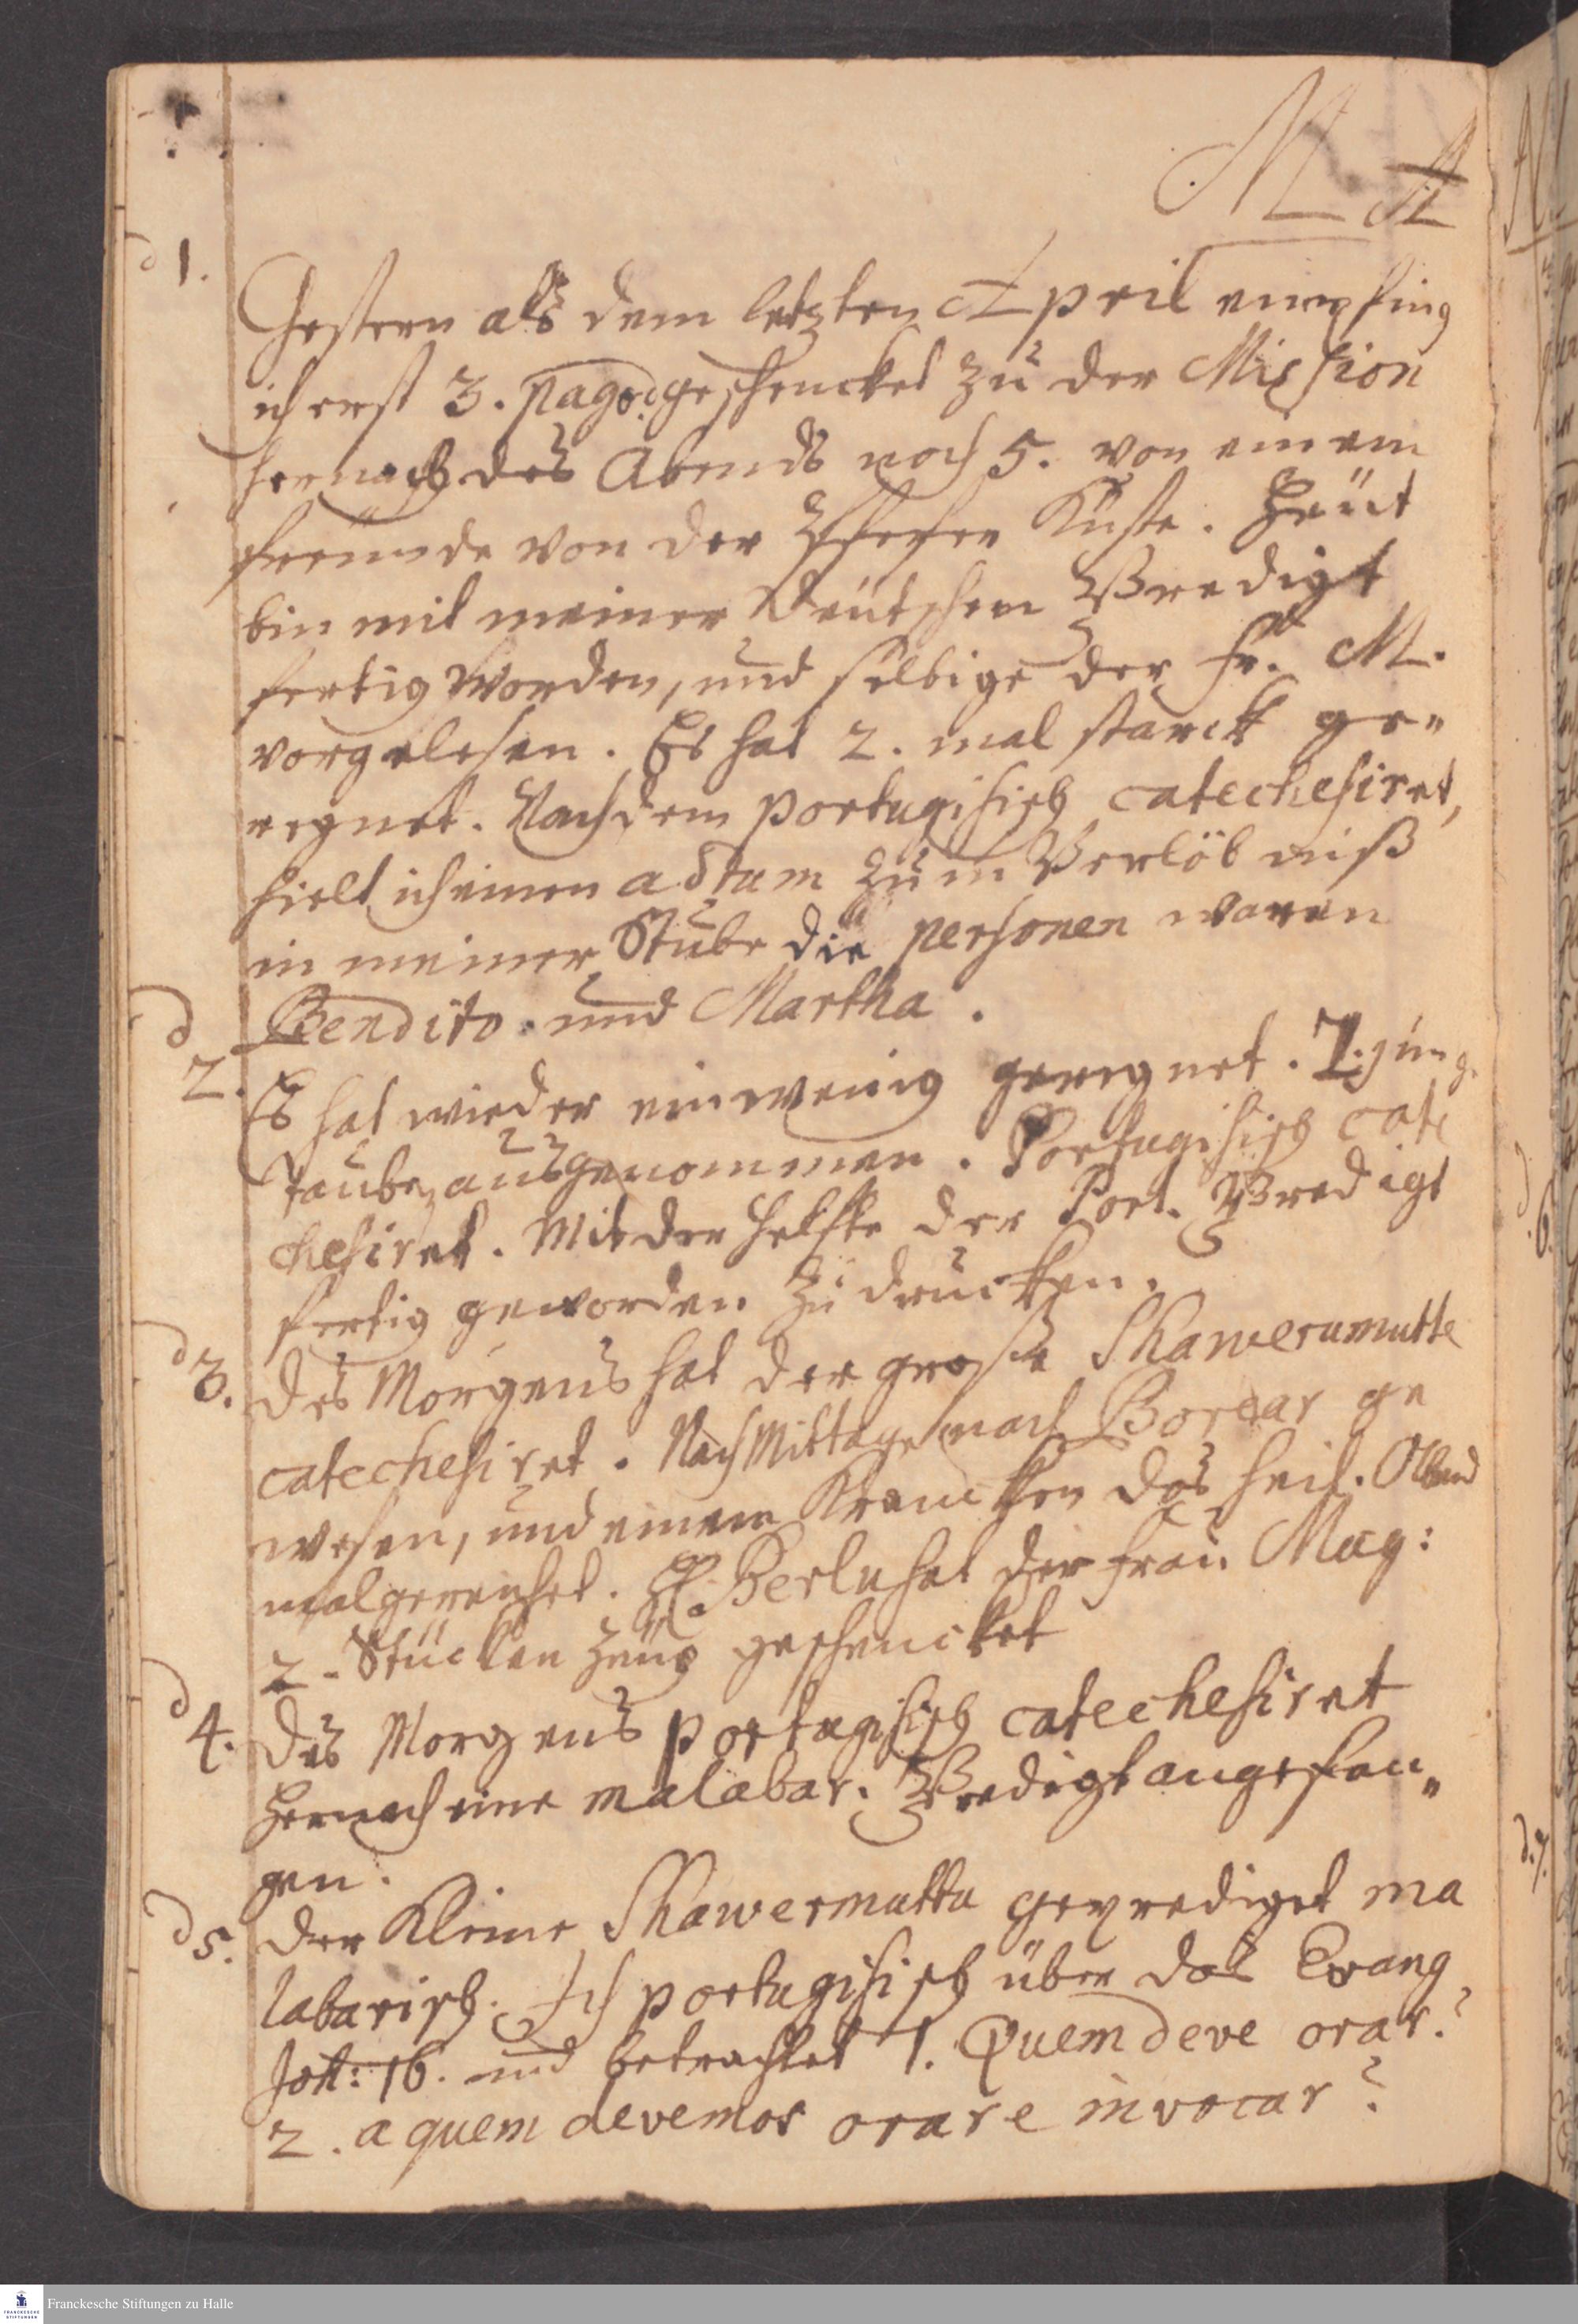 M A
d 1.
Gestern als dem letzten April empfing
ich erst 3. pagod. geschencket zu der Mission
hernach des Abends noch 5. von einem
freunde von der Küste. Heut
bin mit meiner Deutschen Predigt
fertig worden, und selbige der fr. M.
vorgelesen. Es hat 2. mal starck ge„
regnet. Nachdem portugisisch catechesiret,
hielt ich einen actum zum Verlöbniß
in meiner Stube die personen waren
Bendito. und Martha.
d 2.
Es hat wieder ein wenig geregnet. 2. jung.
Tauben ausgenommen. Portugisisch cate
chesiret. Mit der helfte der Port. Predigt
fertig geworden zu drucken.
d 3.
Des Morgens hat der große Shawerumutte
catechesiret. Nach Mittage nach Borear ge
wesen, und einem Krancken das heil. Abend
mal gereichet. H. Berlu hat der frau Mag:
2. Stücken Zeug geschencket
d 4.
Des Morgens portugisisch catechesiret
hernach eine malabar. Predigt angefan„
gen.
d 5.
Der Kleine Shawermuttu geprediget ma
labarisch. Ich portugisisch über das Evang
Joh: 16. und betrachtet 1. Quem deve orar?
2. a quem devemos orar e invocar?
Franckesche Stiftungen zu Halle